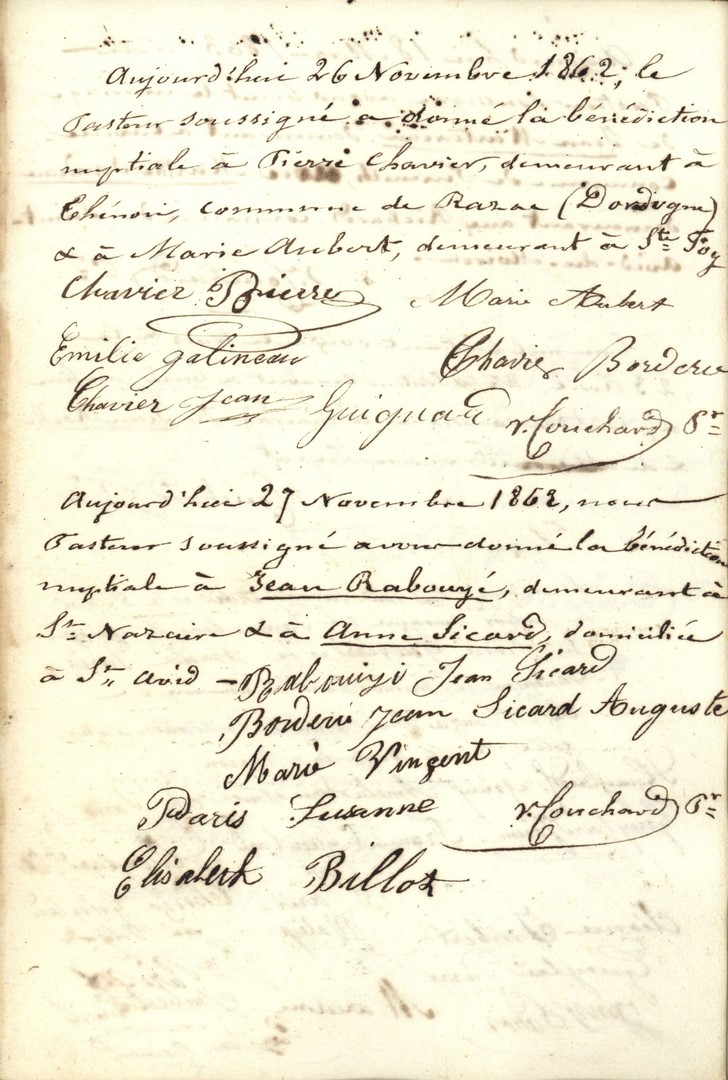 Aujourd'hui 26 Novembre 1862, le
Pasteur soussigné a donné la bénédiction
nuptiale à Pierre Chavier, demeurant à
Thénon, commune de Razac (Dordogne)
& à Marie Aubert, demeurant à Ste Foy
Chavier Pierre Marie Aubert
Emilie galineau Chavier Borderie
Chavier jean Guignard V. Couchard Pr
Aujourd'hui 27 Novembre 1862, nous
Pasteur soussigné avons donné la bénédiction
nuptiale à Jean Rabouyé, demeurant à
St Nazaire & à Anne Sicard, domiciliée
à St Avid – Rabouyé Jean Sicard
Borderie jean Sicard Auguste
Marie Vincent
Paris Susanne V. Couchard Pr
Elisabeth Billot